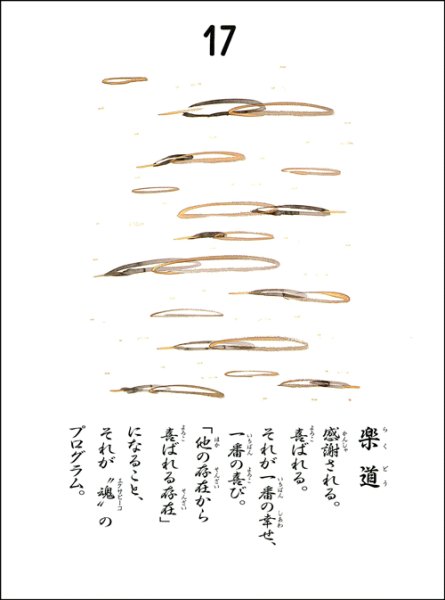 17
楽道
感謝される。
喜ばれる。
それが一番の幸せ、
一番の喜び。
「他の存在から
喜ばれる存在」
になること、
それが〝魂〟の
プログラム。